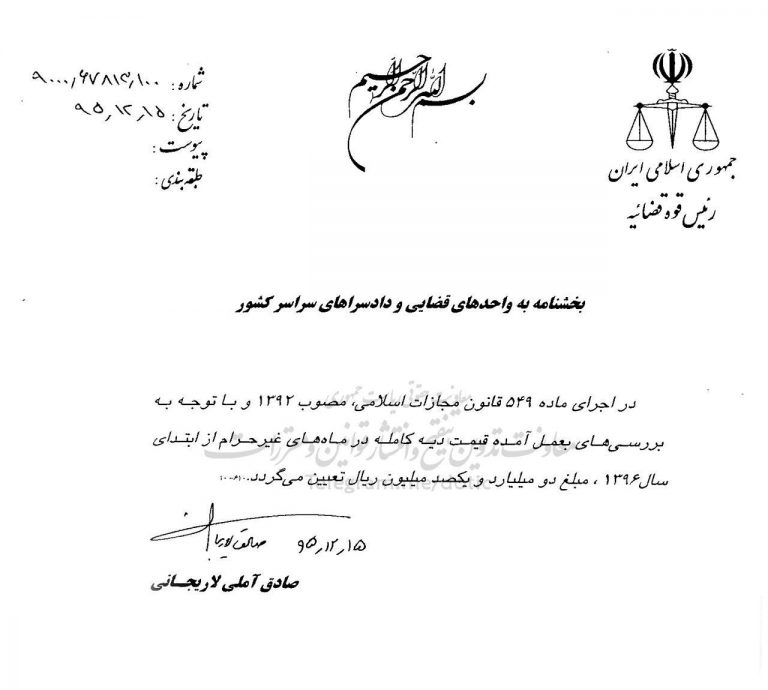 بسم الله الرحمن الرحیم
جمهوری اسلامی ایران
رئیس قوه قضائیه
شماره: ۹۰۰۰/۶۷۸۱۴/۱۰۰
تاریخ: ۹۵/۱۲/۱۵
پیوست:
طبقه‌بندی:
بخشنامه به واحدهای قضایی و دادسراهای سراسر کشور
در اجرای ماده ۵۴۹ قانون مجازات اسلامی، مصوب ۱۳۹۲ و با توجه به
بررسی‌های بعمل آمده قیمت دیه کامله در ماه‌های غیرحرام از ابتدای
سال ۱۳۹۶ ، مبلغ دو میلیارد و یکصد میلیون ریال تعیین می‌گردد.
معاونت تدوین تنقیح و انتشار قوانین و مقررات
۹۵/۱۲/۱۵
صادق آملی لاریجانی